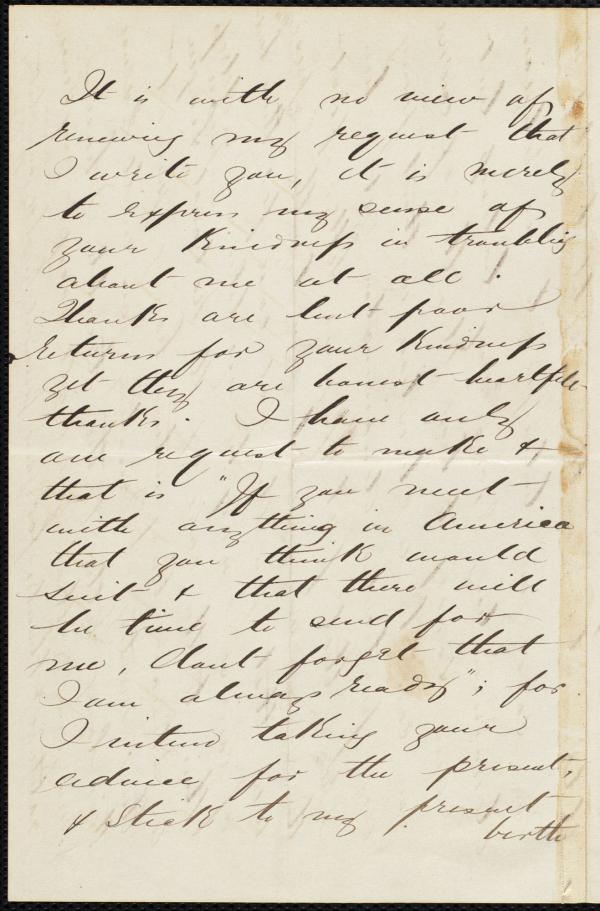 It is with no view of
renewing my request that
I write you, it is merely
to express my sense of
your kindness in troubling
about me at all.
Thanks are but poor
returns for your kindness
yet they are honest heartfelt
thanks. I have only
one request to make &
that is "If you meet
with anything in America
that you think would
suit & that there will
be time to send for
me, dont forget that
I am always ready"; for
I intend taking your
advice for the present,
& stick to my present
berth